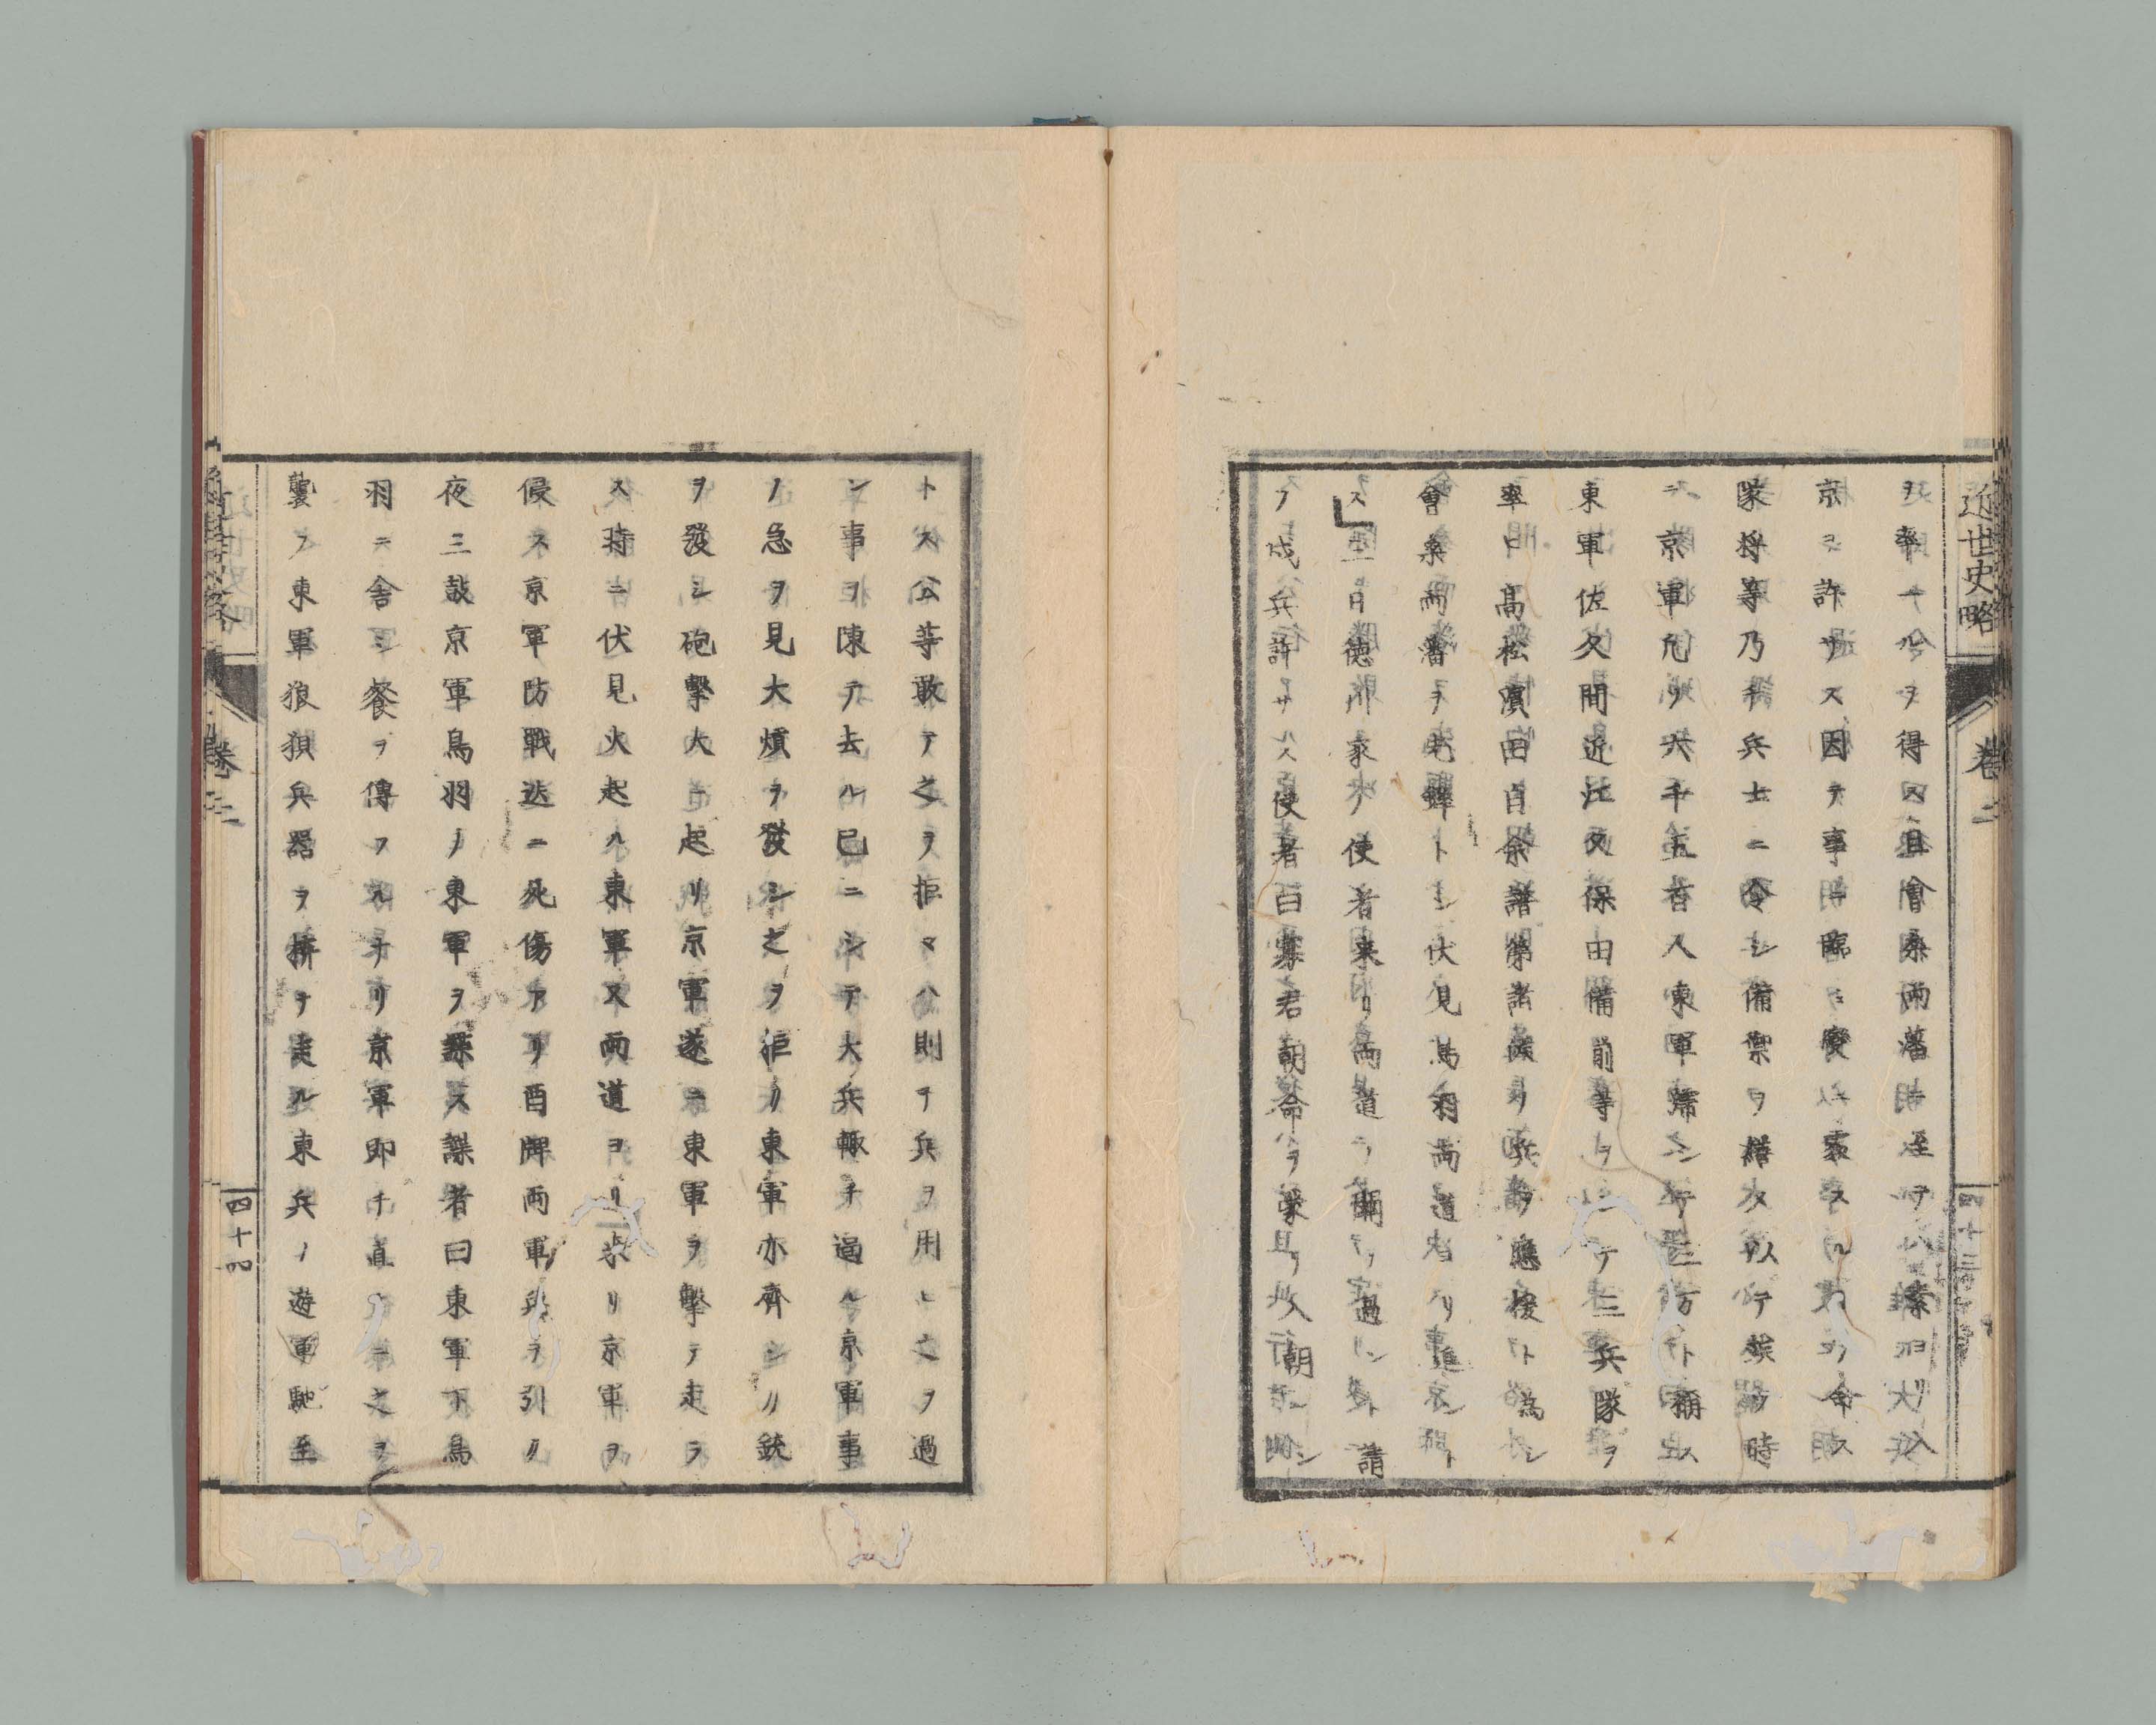 近世史略
卷二
ヲ率ヰルヲ得ス且會桑兩藩至テハ素ヨリ入
京ヲ許サス因テ事ニ臨ミ變ニ應スルヲ命ス
隊將等乃チ兵士ニ令シ備禦ヲ措タ以テ俟ツ時
ニ京軍凡ソ六千五百人東軍ハ三万ト稱ス
東軍佐久間近江久保田備前等ヲシテ三兵隊ヲ
率ヒ高松濱田自余譜第諸侯ノ兵ヲ應援ト為シ
會桑兩藩ヲ先鋒トシ伏見鳥羽両道ヨリ進ン
ス三日德川家ノ使者来リ両道ヲ過ント請
フ戍兵許サス使者曰寡君朝命ヲ蒙リ入朝シ
トス公等敢テ之ヲ拒マハ則チ兵ヲ用ヒ之ヲ過
ン事ヲ陳テ去ル已ニシテ大兵輙チ過ル京軍事
ノ急ヲ見大煩ヲ發シ之ヲ拒ク東軍亦齊シク銃
ヲ發シ砲擊大ニ起リ京軍遂ニ東軍ヲ擊テ走ラ
ス時ニ伏見火起ル東軍又両道ヨリ来リ京軍ヲ
侵ス京軍防戰迭ニ死傷アリ酉牌両軍兵ヲ引ク
夜三鼓京軍鳥羽ノ東軍ヲ謀ス諜者曰東軍下鳥
羽ニ舎シ餐ヲ傳フルナリ京軍即チ直ニ之ヲ
襲フ東軍狼狽兵器ヲ擠テ走ル東兵ノ遊軍馳至
四十四